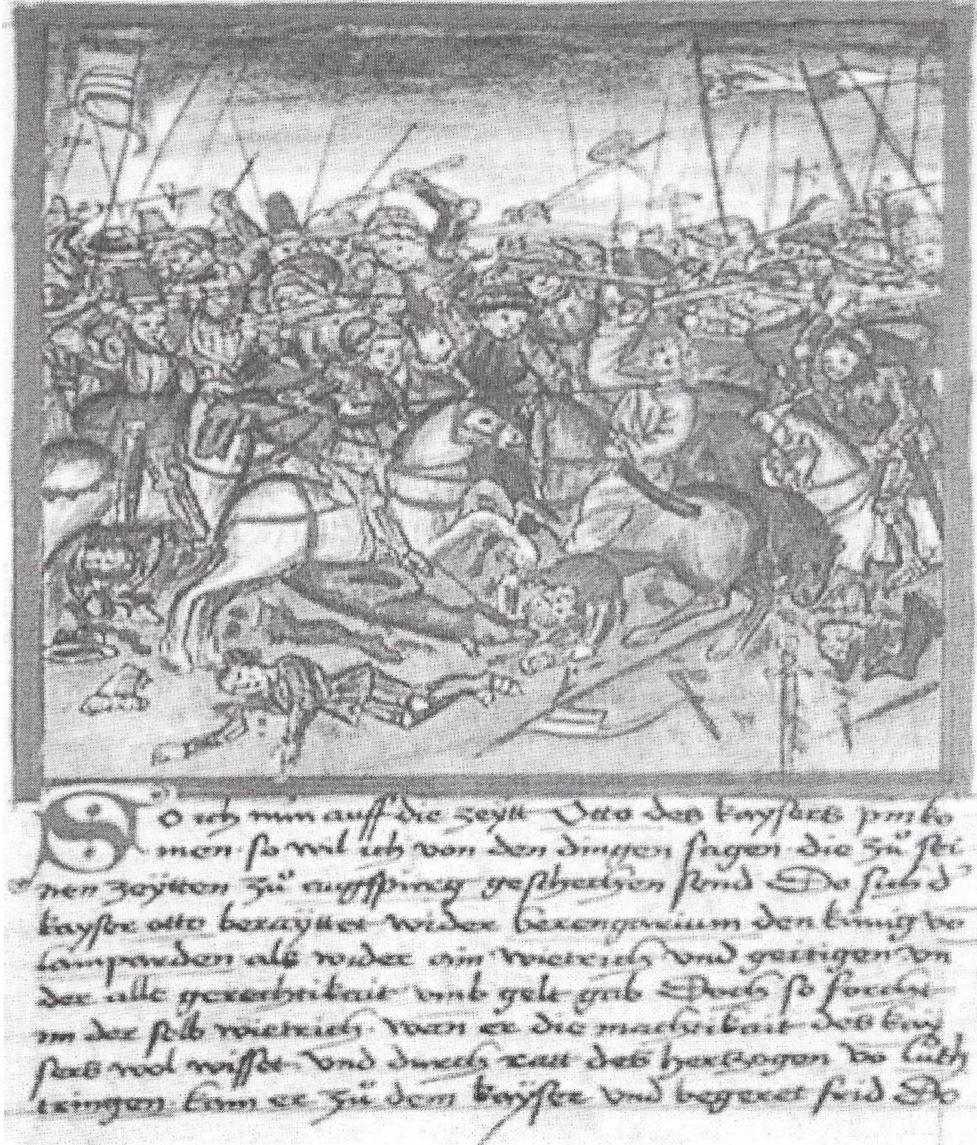 So ich nun auff die zeytt Otto des kaysers pin ko
men so wil ich von den dingen sagen die zů sei
nen zeytten zů augspurg geschechen send Do sich d
kayser otto beraÿttet wider berengarium den künig vo
lamparden als wider ain wietrich vnd geittigen vn
der alle gerechtikait vmb gelt gab Doch so forcht
im der selb wietrich wan er die machtikait des kay
sers wol wisset vnd durch ratt des hertzogen vo luth
tringen kam er zů dem kayser vnd begeret frid Do